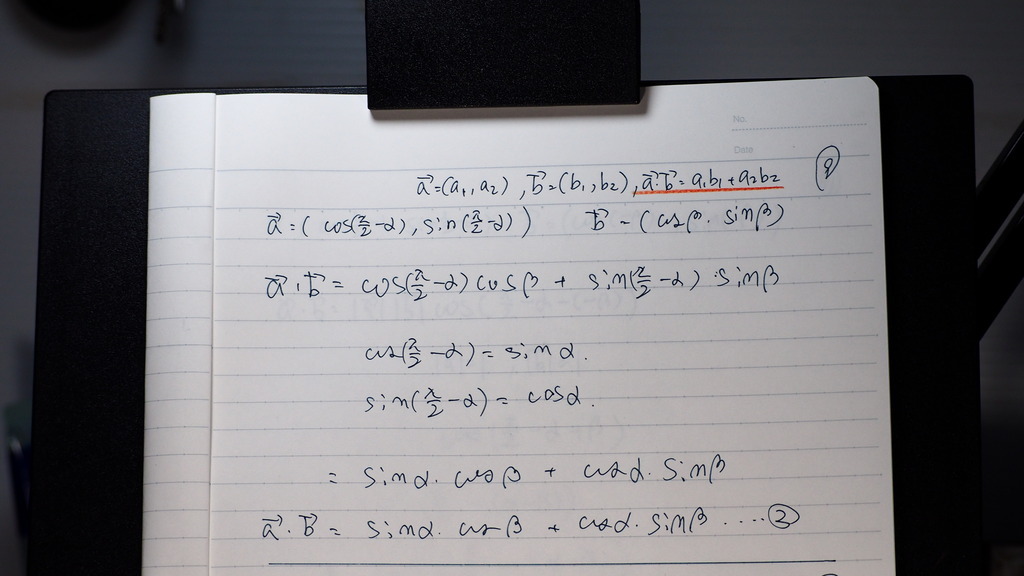 No.
Date
a⃗=(a₁, a₂), b⃗=(b₁, b₂), a⃗·b⃗=a₁b₁+a₂b₂
a⃗=(cos(π/2-α), sin(π/2-α)) b⃗=(cosβ. sinβ)
a⃗·b⃗=cos(π/2-α)cosβ + sin(π/2-α)·sinβ
cos(π/2-α)=sinα.
sin(π/2-α)=cosα.
= sinα·cosβ + cosα·sinβ
a⃗·b⃗= sinα·cosβ + cosα·sinβ ....②